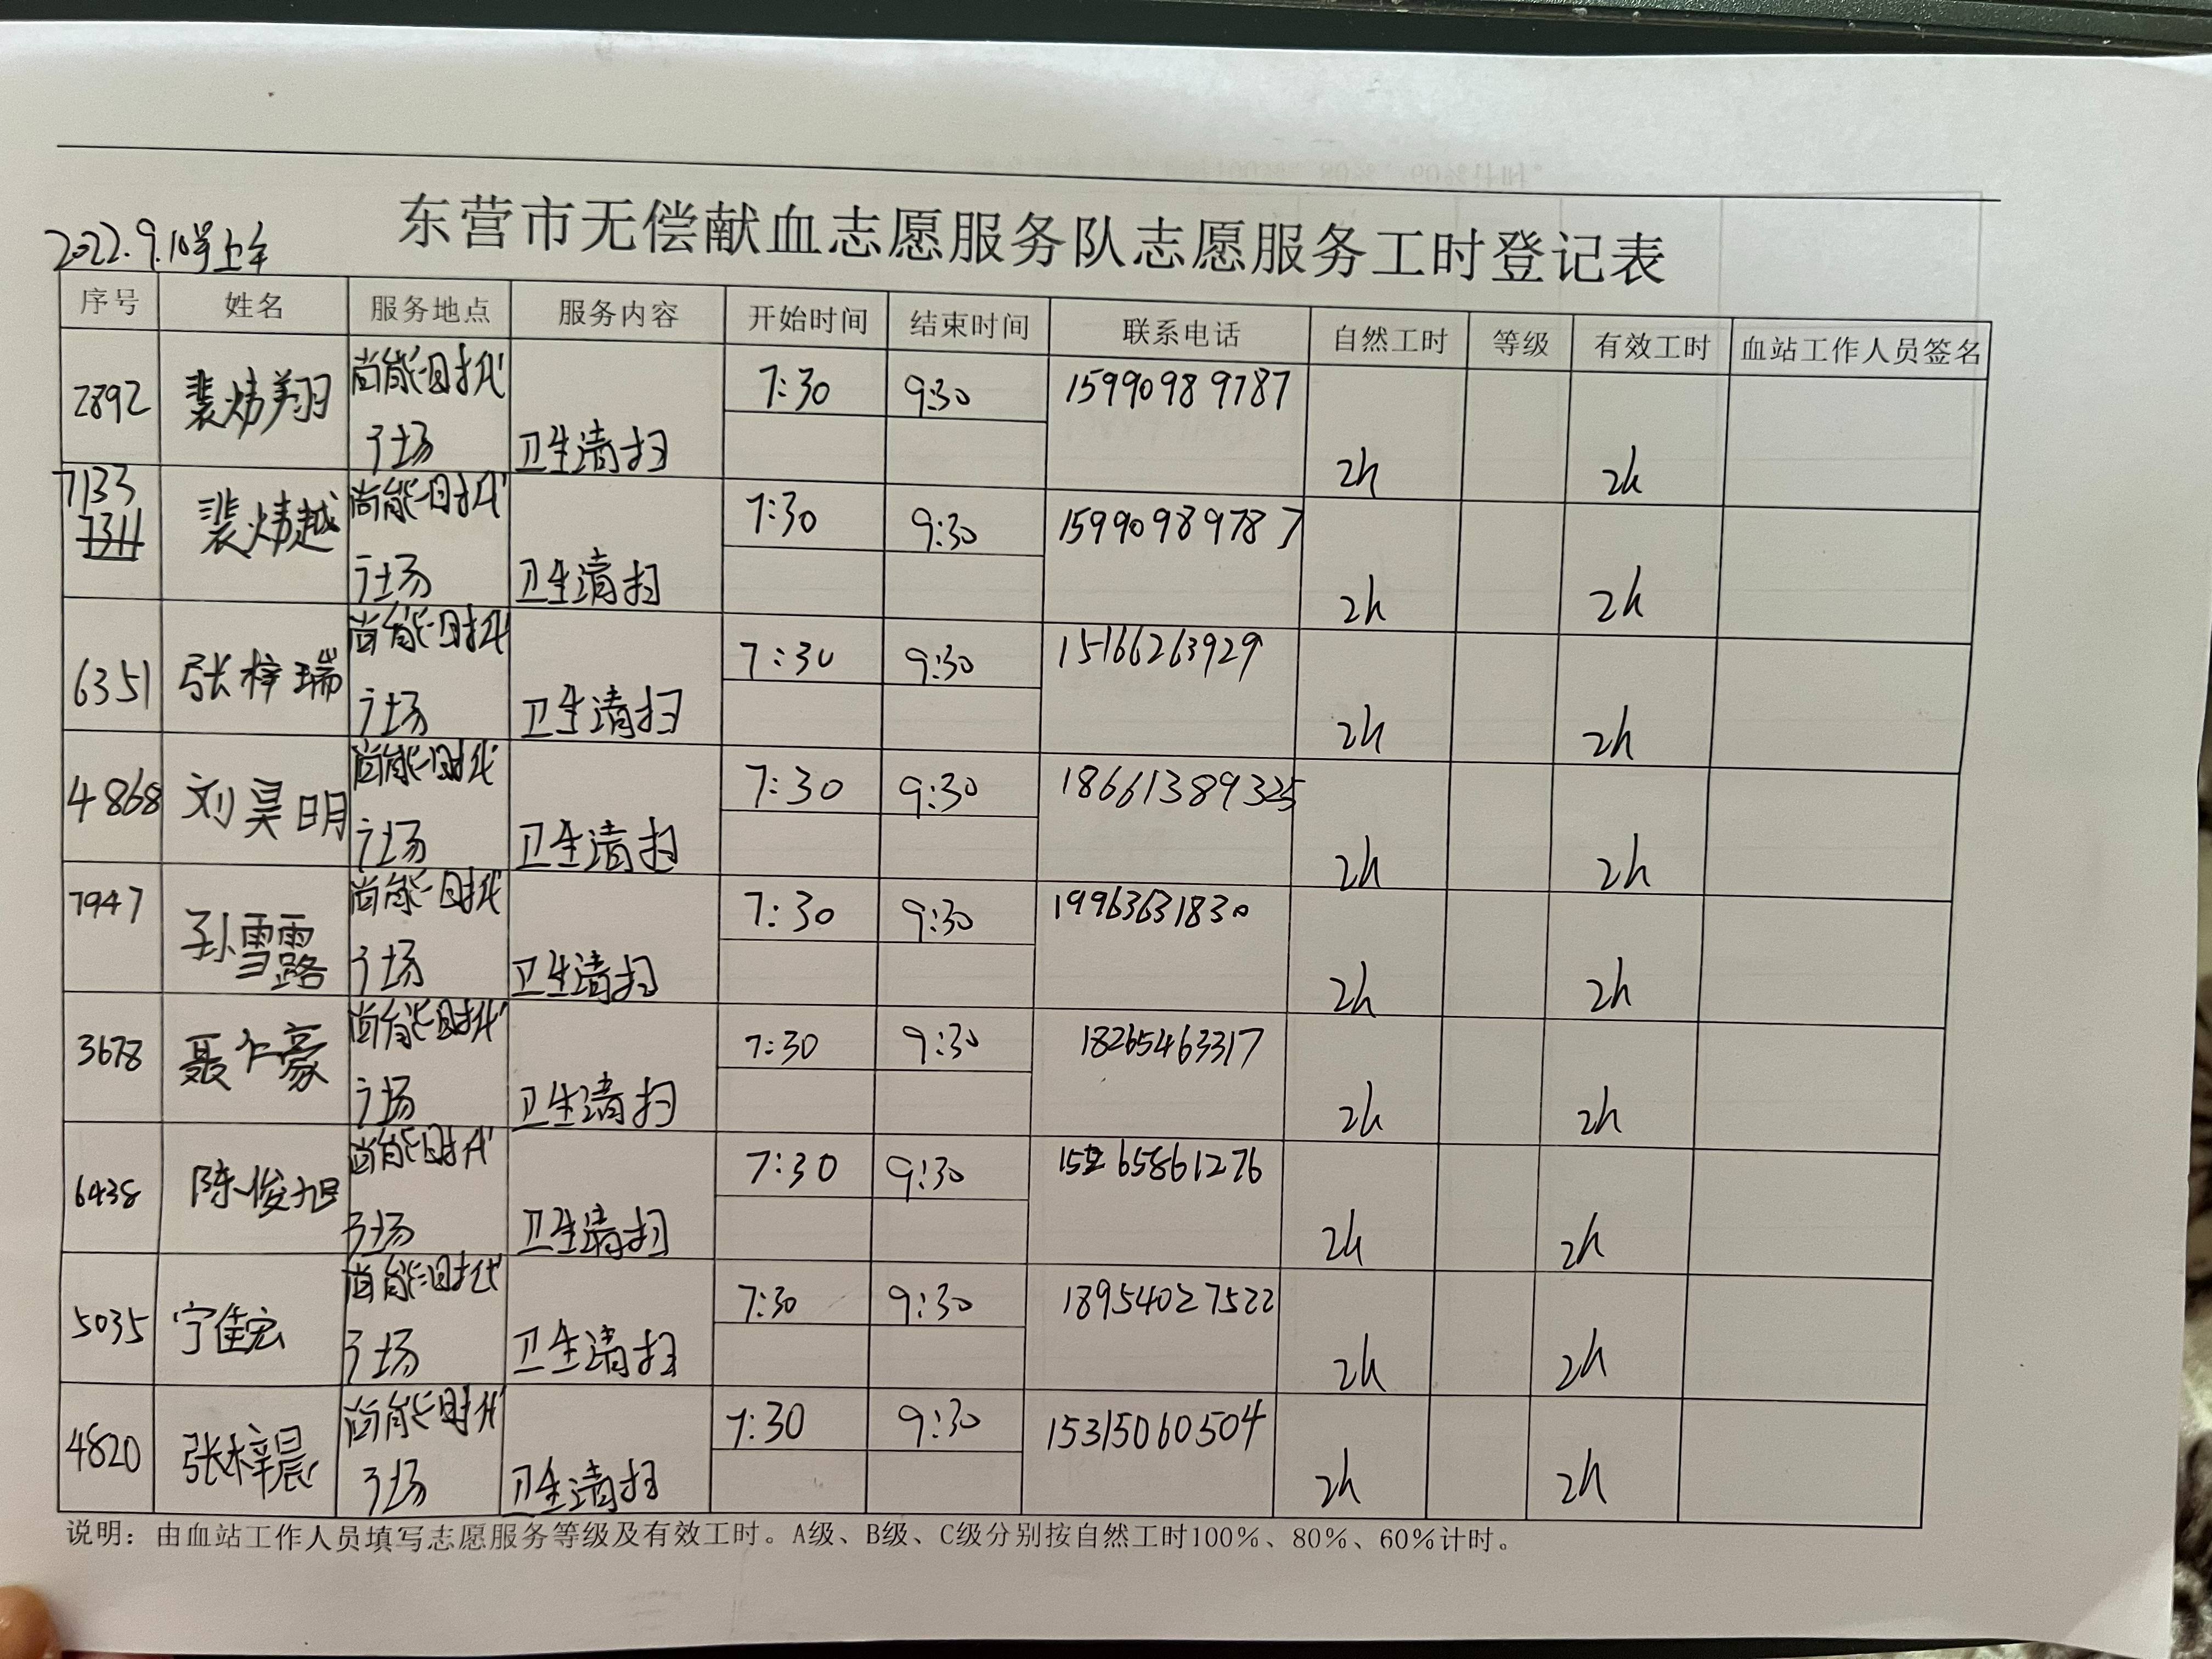 东营市无偿献血志愿服务队志愿服务工时登记表
2022.9.10号上午
序号 姓名 服务地点 服务内容 开始时间 结束时间 联系电话 自然工时 等级 有效工时 血站工作人员签名
2892 裴炜翔 尚能时代广场 卫生清扫 7:30 9:30 15990989787 2h 2h
7133 裴炜越 尚能时代广场 卫生清扫 7:30 9:30 15990989787 2h 2h
7311
6351 张梓瑞 尚能时代广场 卫生清扫 7:30 9:30 15166263929 2h 2h
4868 刘昊明 尚能时代广场 卫生清扫 7:30 9:30 18661389325 2h 2h
7947 孙雪露 尚能时代广场 卫生清扫 7:30 9:30 19963631830 2h 2h
3678 聂仁豪 尚能时代广场 卫生清扫 7:30 9:30 18265463317 2h 2h
6438 陈俊旭 尚能时代广场 卫生清扫 7:30 9:30 15265861276 2h 2h
5035 宁佳宏 尚能时代广场 卫生清扫 7:30 9:30 18954027522 2h 2h
4820 张梓晨 尚能时代广场 卫生清扫 7:30 9:30 15315060504 2h 2h
说明：由血站工作人员填写志愿服务等级及有效工时。A级、B级、C级分别按自然工时100%、80%、60%计时。